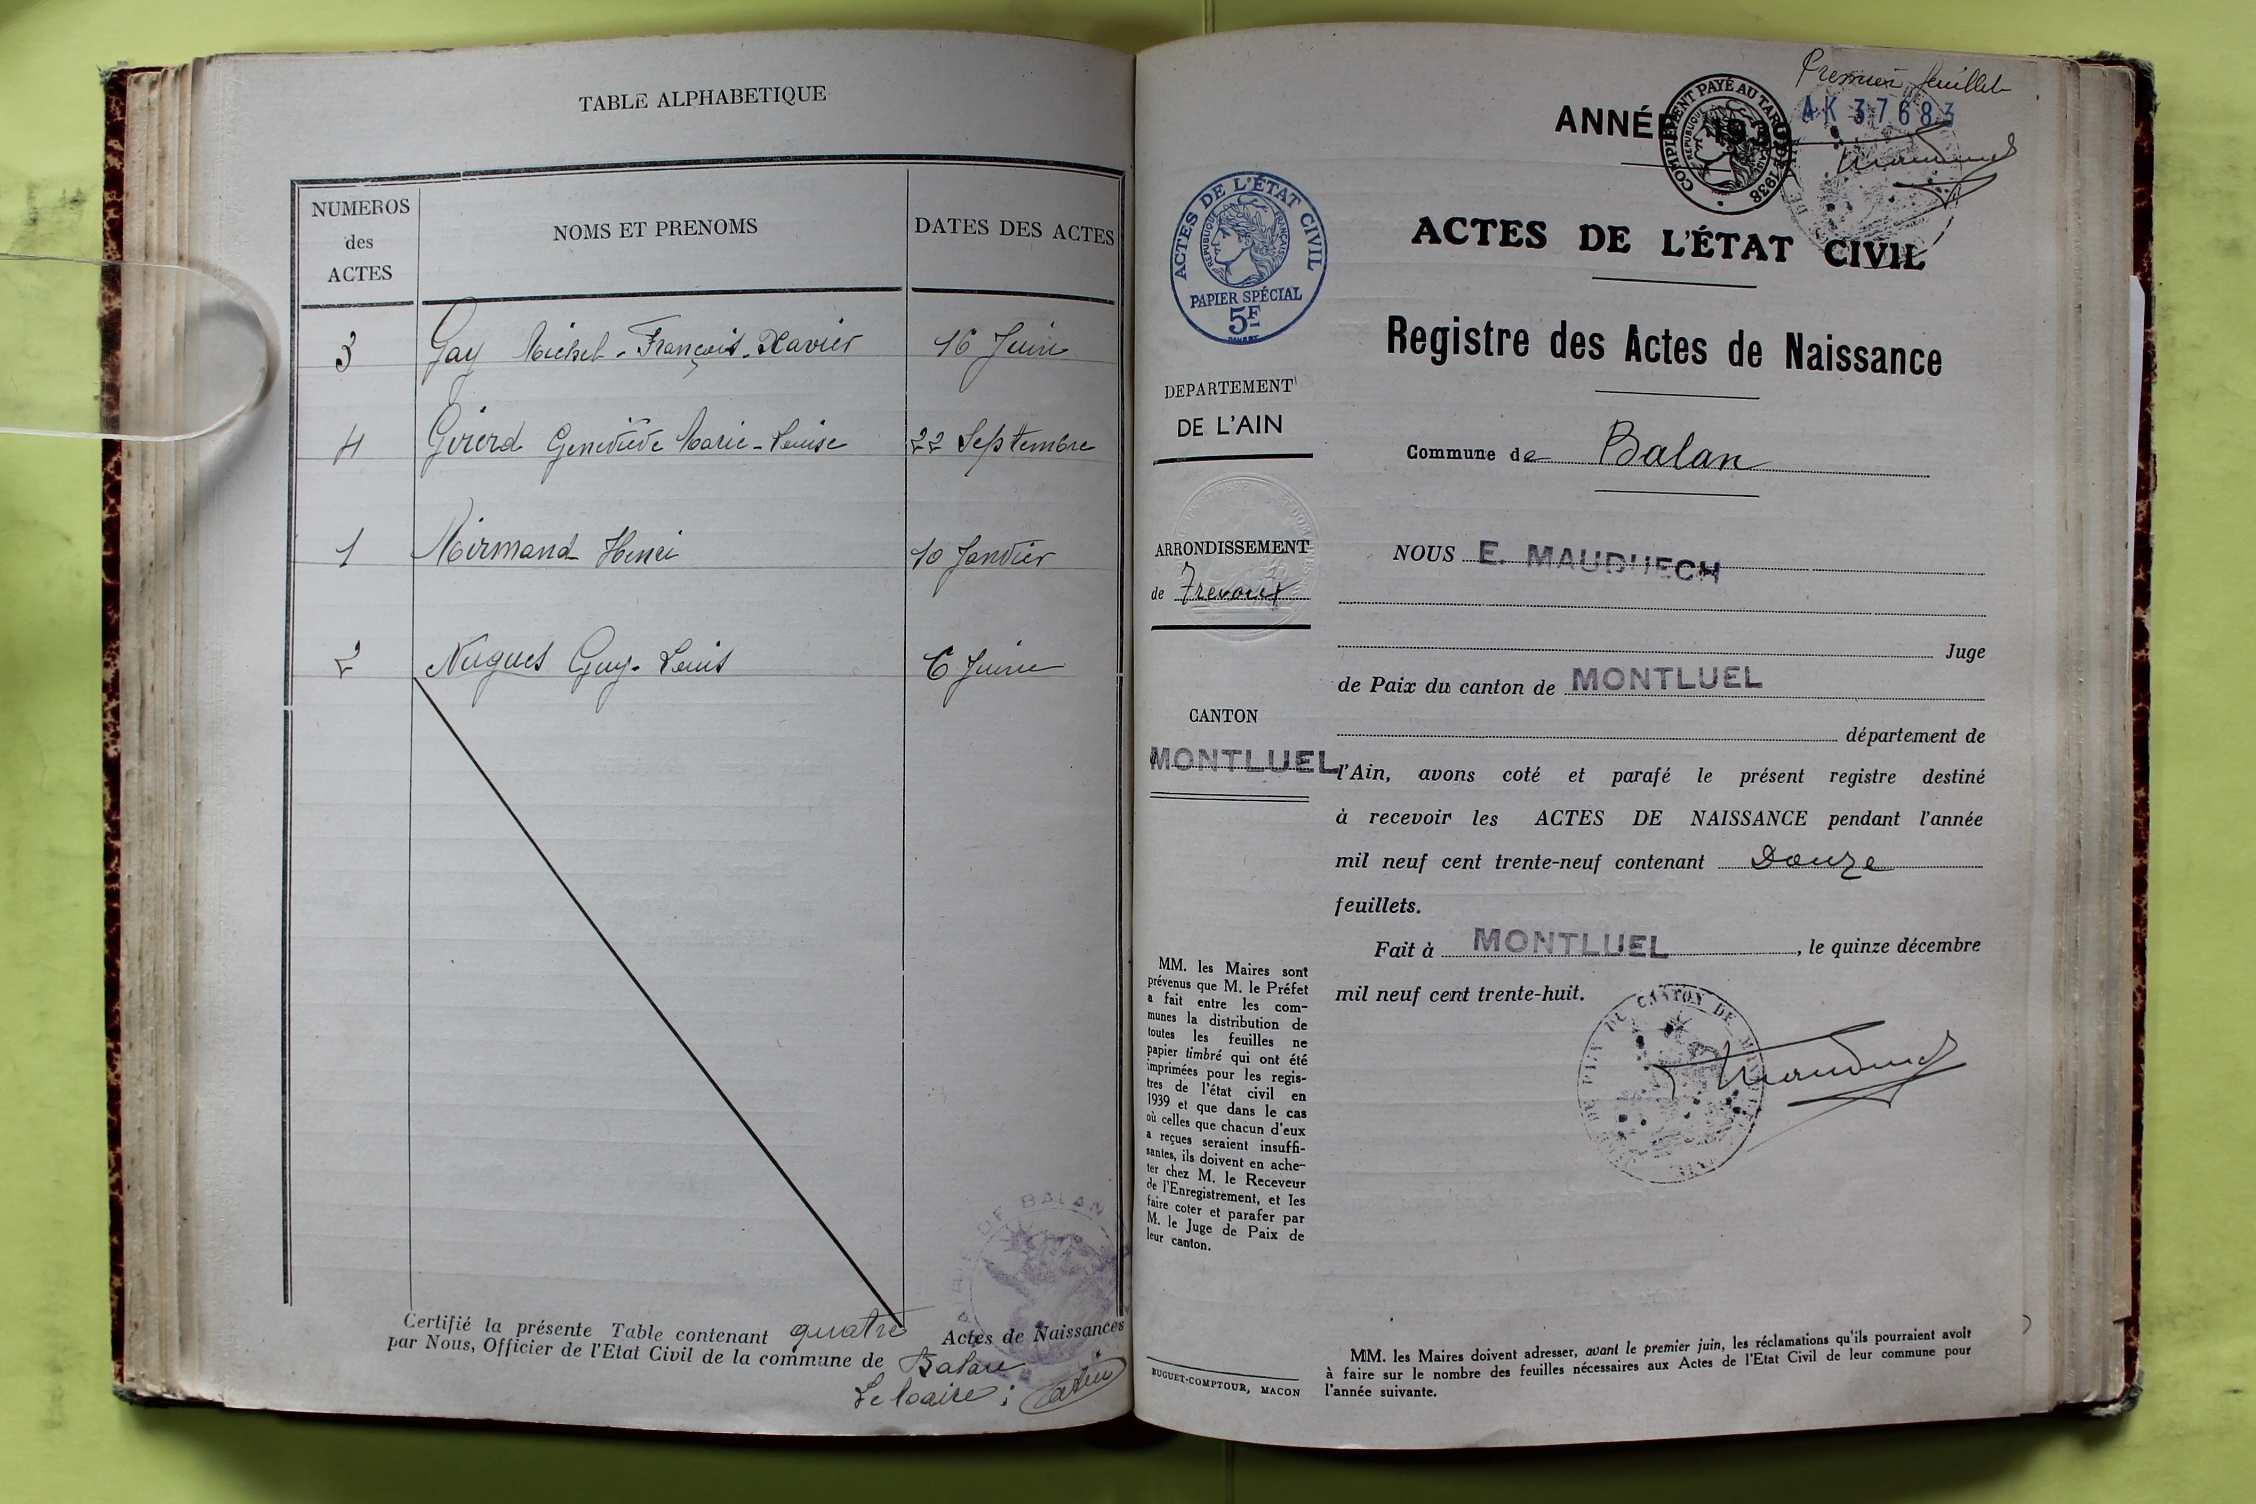 TABLE ALPHABETIQUE
NUMEROS
des
ACTES
NOMS ET PRENOMS
DATES DES ACTES
3 Gay Michel-François-Xavier 16 Juin
4 Girerd Geneviève Marie-Louise 22 Septembre
1 Mirmand Henri 10 Janvier
2 Nugues Guy-Louis 6 Juin
Certifié la présente Table contenant quatre Actes de Naissances
par Nous, Officier de l'Etat Civil de la commune de Balan
Le Maire :
MAIRIE DE BALAN
Premier feuillet
AK 37683
ANNÉE 193
COMPLÉMENT PAYÉ AU TARIF DE 1938
REPUBLIQUE FRANÇAISE
ACTES DE L'ÉTAT CIVIL
REPUBLIQUE FRANÇAISE
PAPIER SPÉCIAL
5F
ACTES DE L'ÉTAT CIVIL
Registre des Actes de Naissance
DEPARTEMENT
DE L'AIN
Commune de Balan
ARRONDISSEMENT
de Trevoux
CANTON
MONTLUEL
NOUS E. MAUDUECH
Juge
de Paix du canton de MONTLUEL
département de
l'Ain, avons coté et parafé le présent registre destiné
à recevoir les ACTES DE NAISSANCE pendant l'année
mil neuf cent trente-neuf contenant Douze
feuillets.
Fait à MONTLUEL, le quinze décembre
mil neuf cent trente-huit.
DU CANTON DE
MM. les Maires sont
prévenus que M. le Préfet
a fait entre les com-
munes la distribution de
toutes les feuilles ne
papier timbré qui ont été
imprimées pour les regis-
tres de l'état civil en
1939 et que dans le cas
où celles que chacun d'eux
a reçues seraient insuffi-
santes, ils doivent en ache-
ter chez M. le Receveur
de l'Enregistrement, et les
faire coter et parafer par
M. le Juge de Paix de
leur canton.
BUGUET-COMPTOUR, MACON
MM. les Maires doivent adresser, avant le premier juin, les réclamations qu'ils pourraient avoir
à faire sur le nombre des feuilles nécessaires aux Actes de l'Etat Civil de leur commune pour
l'année suivante.